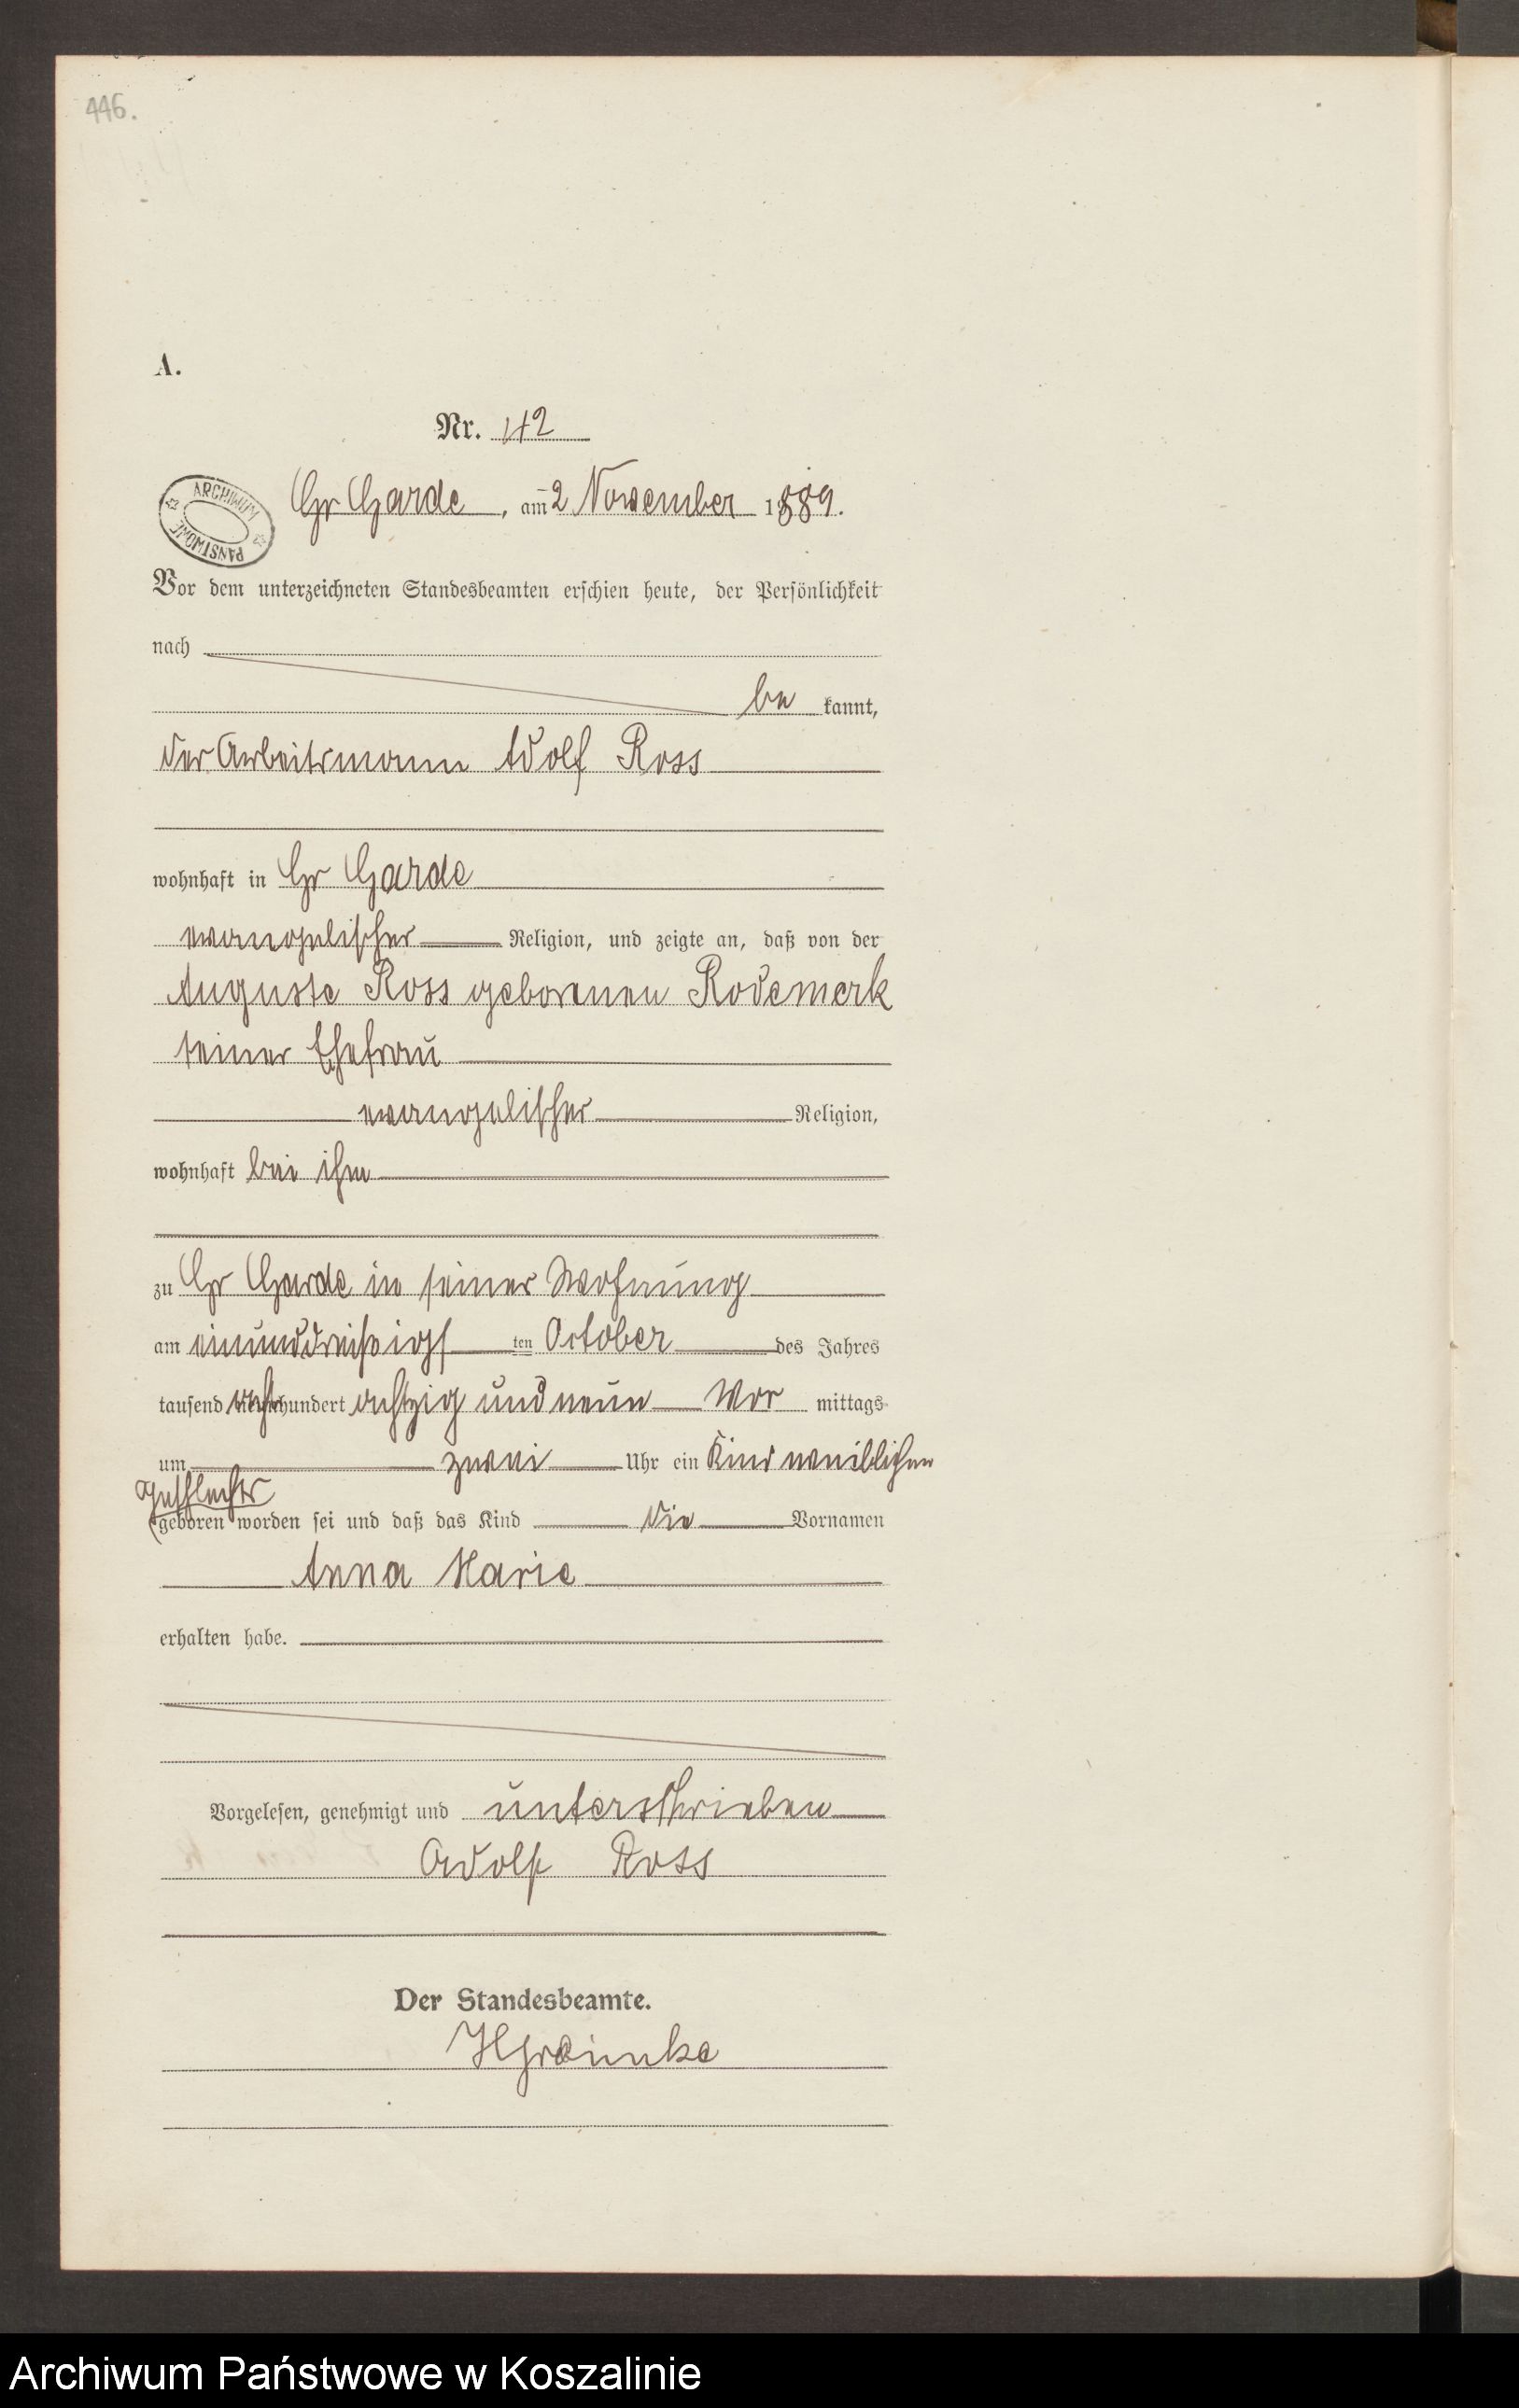 446.
A.
Nr. 142
ARCHIWUM PAŃSTWOWE
Gr Garde, am 2 November 1889.
Vor dem unterzeichneten Standesbeamten erschien heute, der Persönlichkeit
nach
be kannt,
der Arbeitsmann Adolf Ross
wohnhaft in Gr Garde
evangelischer Religion, und zeigte an, daß von der
Auguste Ross geborenen Rodemerk
seiner Ehefrau
evangelischer Religion,
wohnhaft bei ihm
zu Gr Garde in seiner Wohnung
am einunddreißigsten October des Jahres
tausend acht hundert achtzig und neun Vor mittags
um zwei Uhr ein Kind weiblichen
Geschlechts
geboren worden sei und daß das Kind die Vornamen
Anna Marie
erhalten habe.
Vorgelesen, genehmigt und unterschrieben
Adolf Ross
Der Standesbeamte.
Archiwum Państwowe w Koszalinie